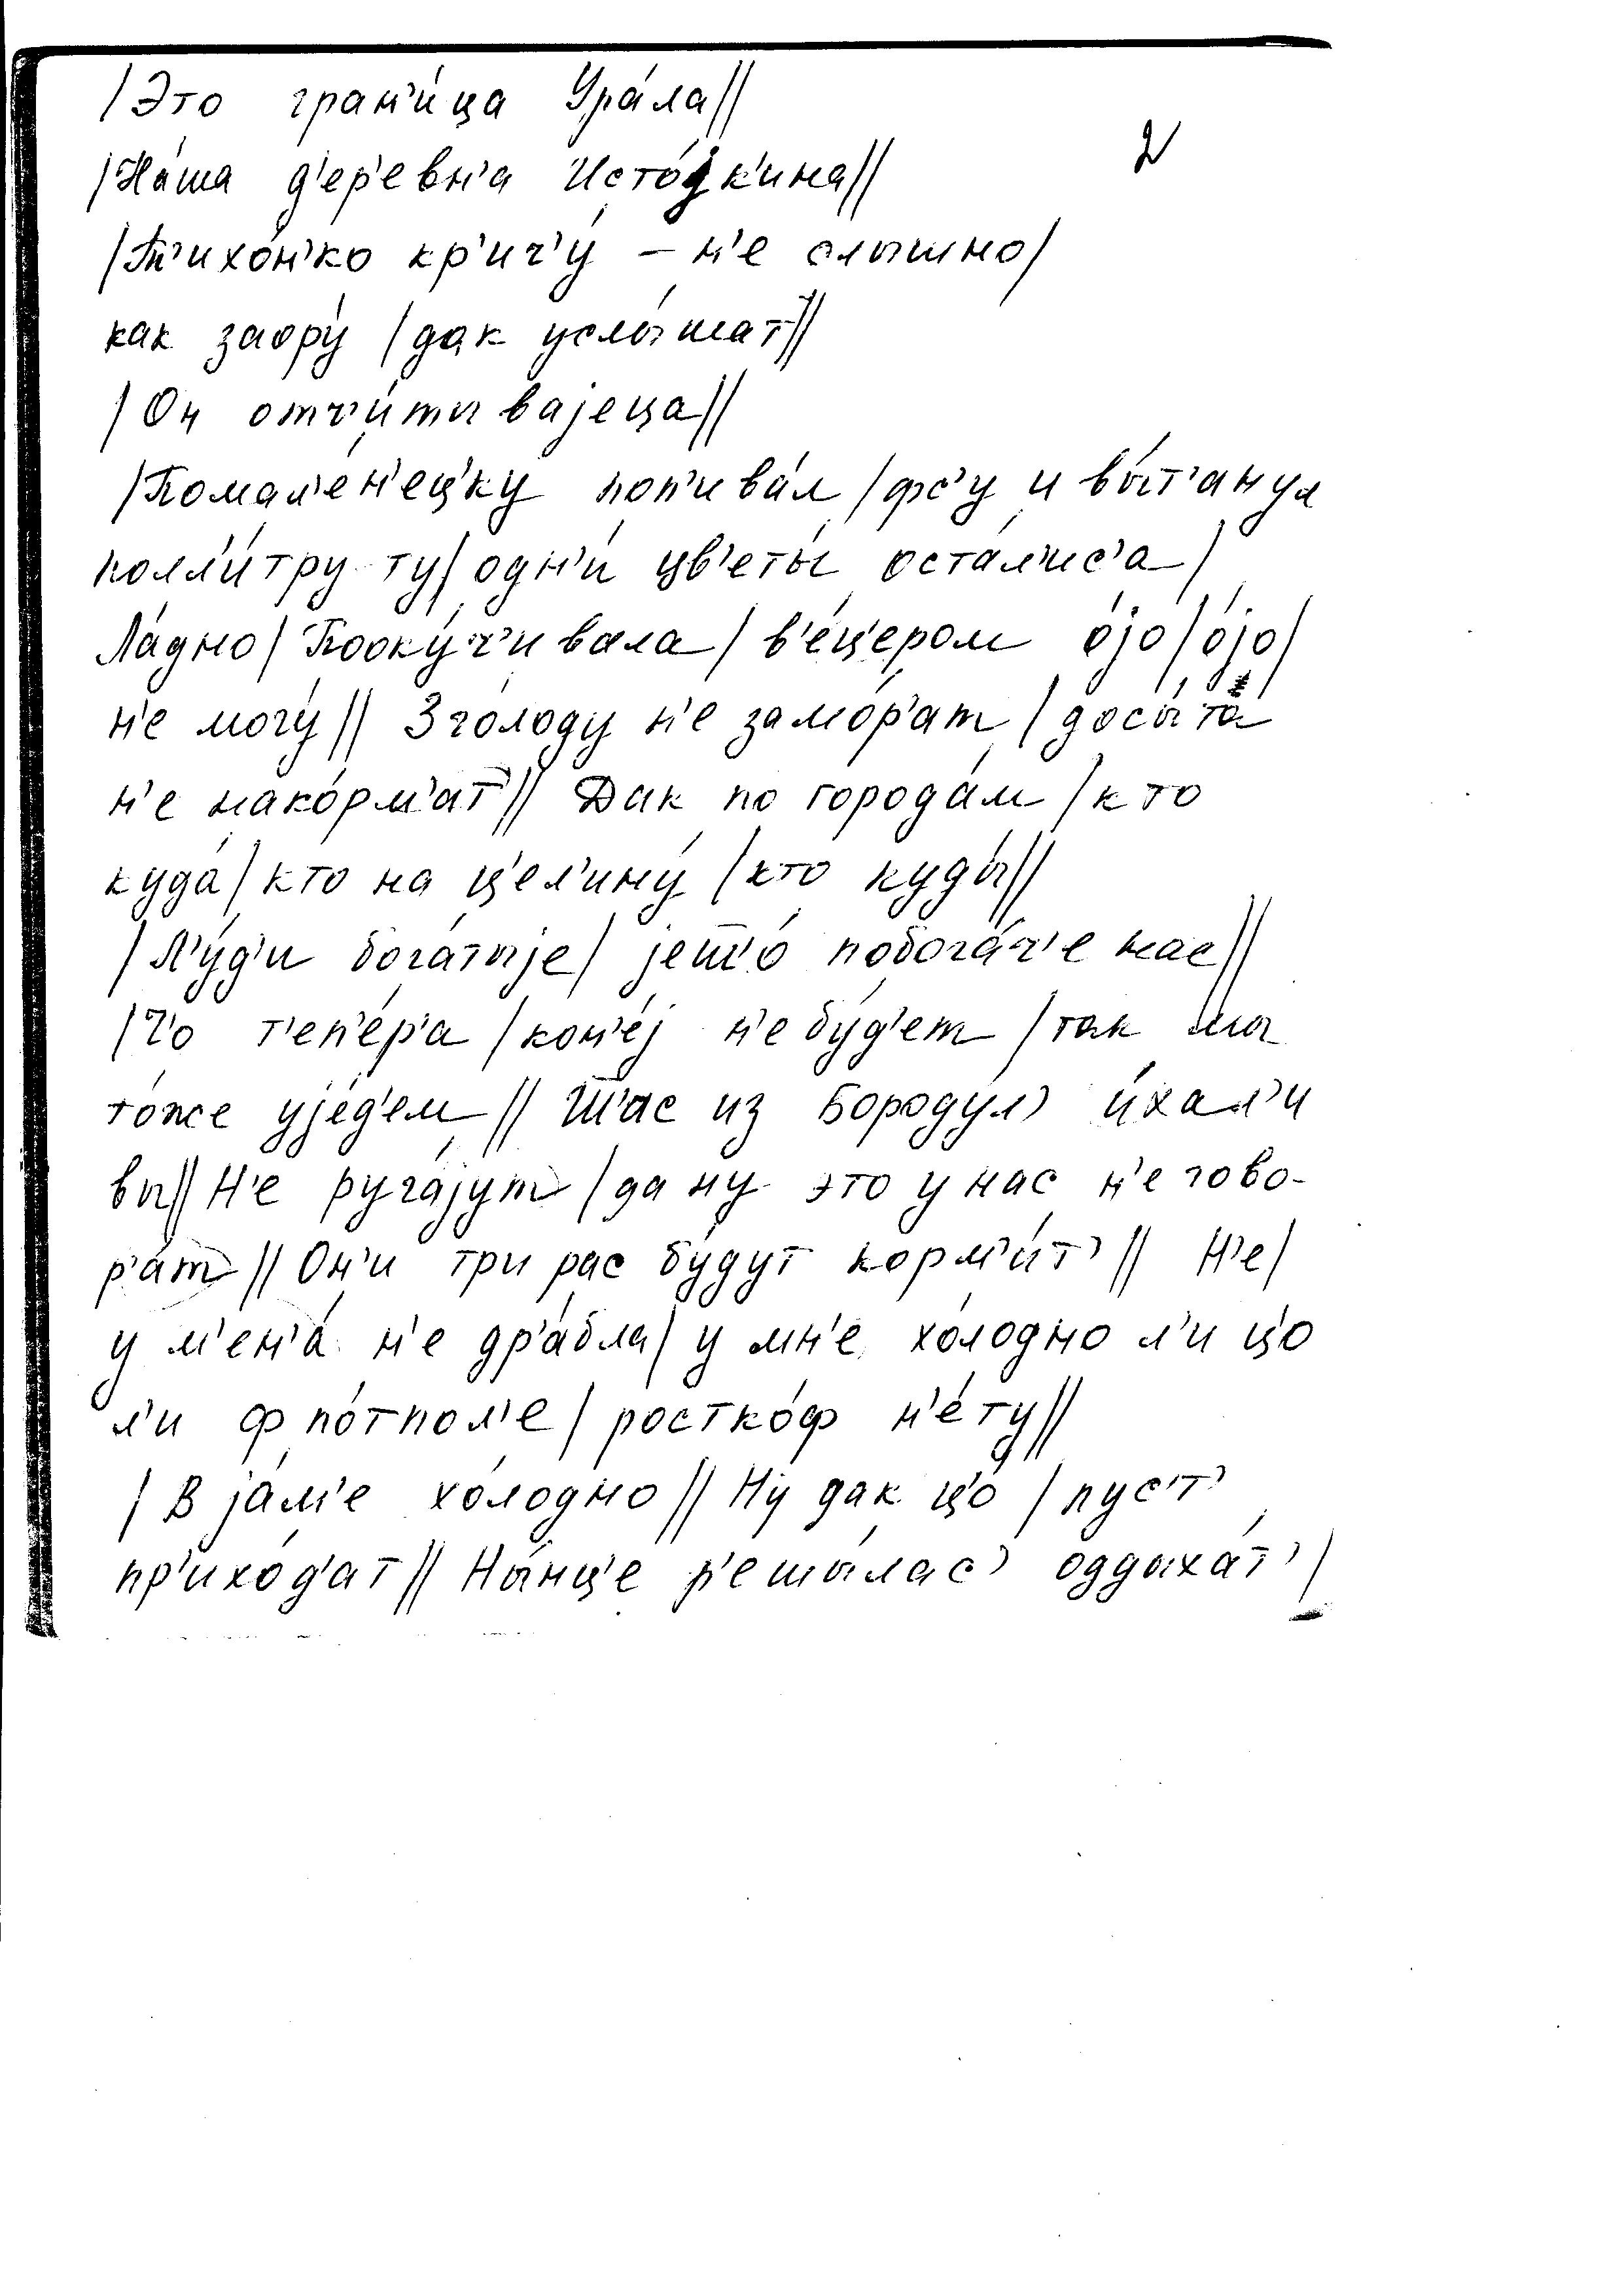 /Это гран'и́ца Ура́ла//
2
/На́ша д'ер'е́вн'а Исто́јк'ина//
/Т'ихо́н'ко кр'ич'у́ – н'е слышно/
как заору́ /дак услы́шат//
/Он отч'и́тывајеца//
/Помал'е́н'ец'ку поп'ива́л /фс'у и вы́т'анул
полл'и́тру ту/ одн'и́ цв'еты́ оста́л'ис'а/
Ла́дно/ Пооку́ч'ивала/ в'е́ц'ером о́јо/о́јо/
н'е могу́// З го́лоду н'е замо́р'ат /досы́та
н'е нако́рм'ат// Дак по города́м /кто
куда́/ кто на ц'ел'ину́ /кто куды́//
/Л'у́д'и бога́тыје/ јеш'о́ побога́ч'е нас//
/Ч'о т'еп'е́р'а /кон'е́ј н'е бу́д'ет /так мы
то́же ује́д'ем// Ш'ас из Бороду́л' и́хал'и
вы// Н'е руга́јут /да ну это у нас н'е гово-
р'а́т// Он'и три рас бу́дут корм'и́т'// Н'е/
у м'ен'а́ н'е др'а́бла/ у мн'е хо́лодно л'и ц'о
л'и ф по́тпол'е/ростко́ф н'е́ту//
/В ја́м'е хо́лодно// Ну дак ц'о́ /пус'т'
пр'ихо́д'ат// Ны́нц'е р'ешы́лас' оддыха́т'/